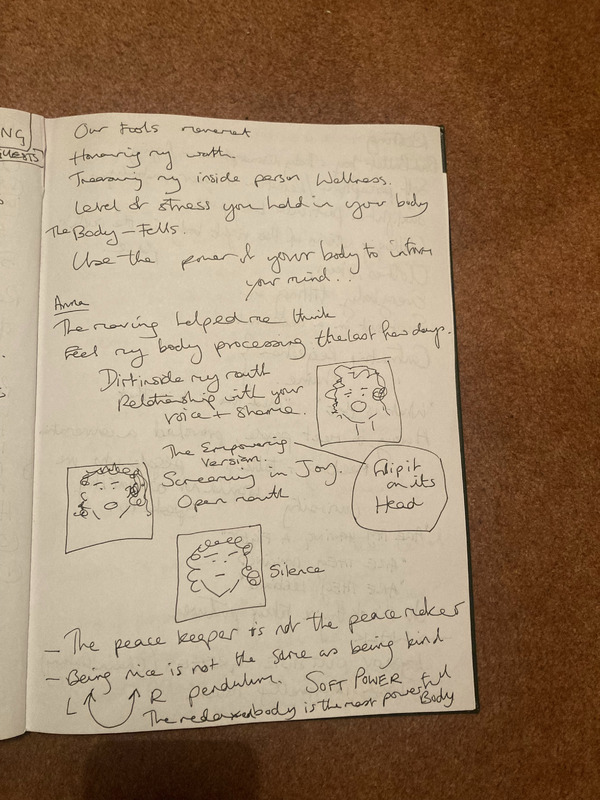 NG
GUESTS
Our Fools
Honouring my worth
Treasuring my inside person Wellness.
Level of stress you hold in your body
The Body – Fells.
Use the power of your body to inform
your mind..
Anna
The moving helped me think
Feel my body processing the last few days.
Dirt inside my mouth
Relationship with your
voice + shame.
The Empowering
Version.
Screaming in Joy.
Open mouth
Flip it
on its
Head
Silence
– The peace keeper is not the peace maker
– Being nice is not the same as being kind
L R pendulum. SOFT POWER
The relaxed body is the most powerful
Body